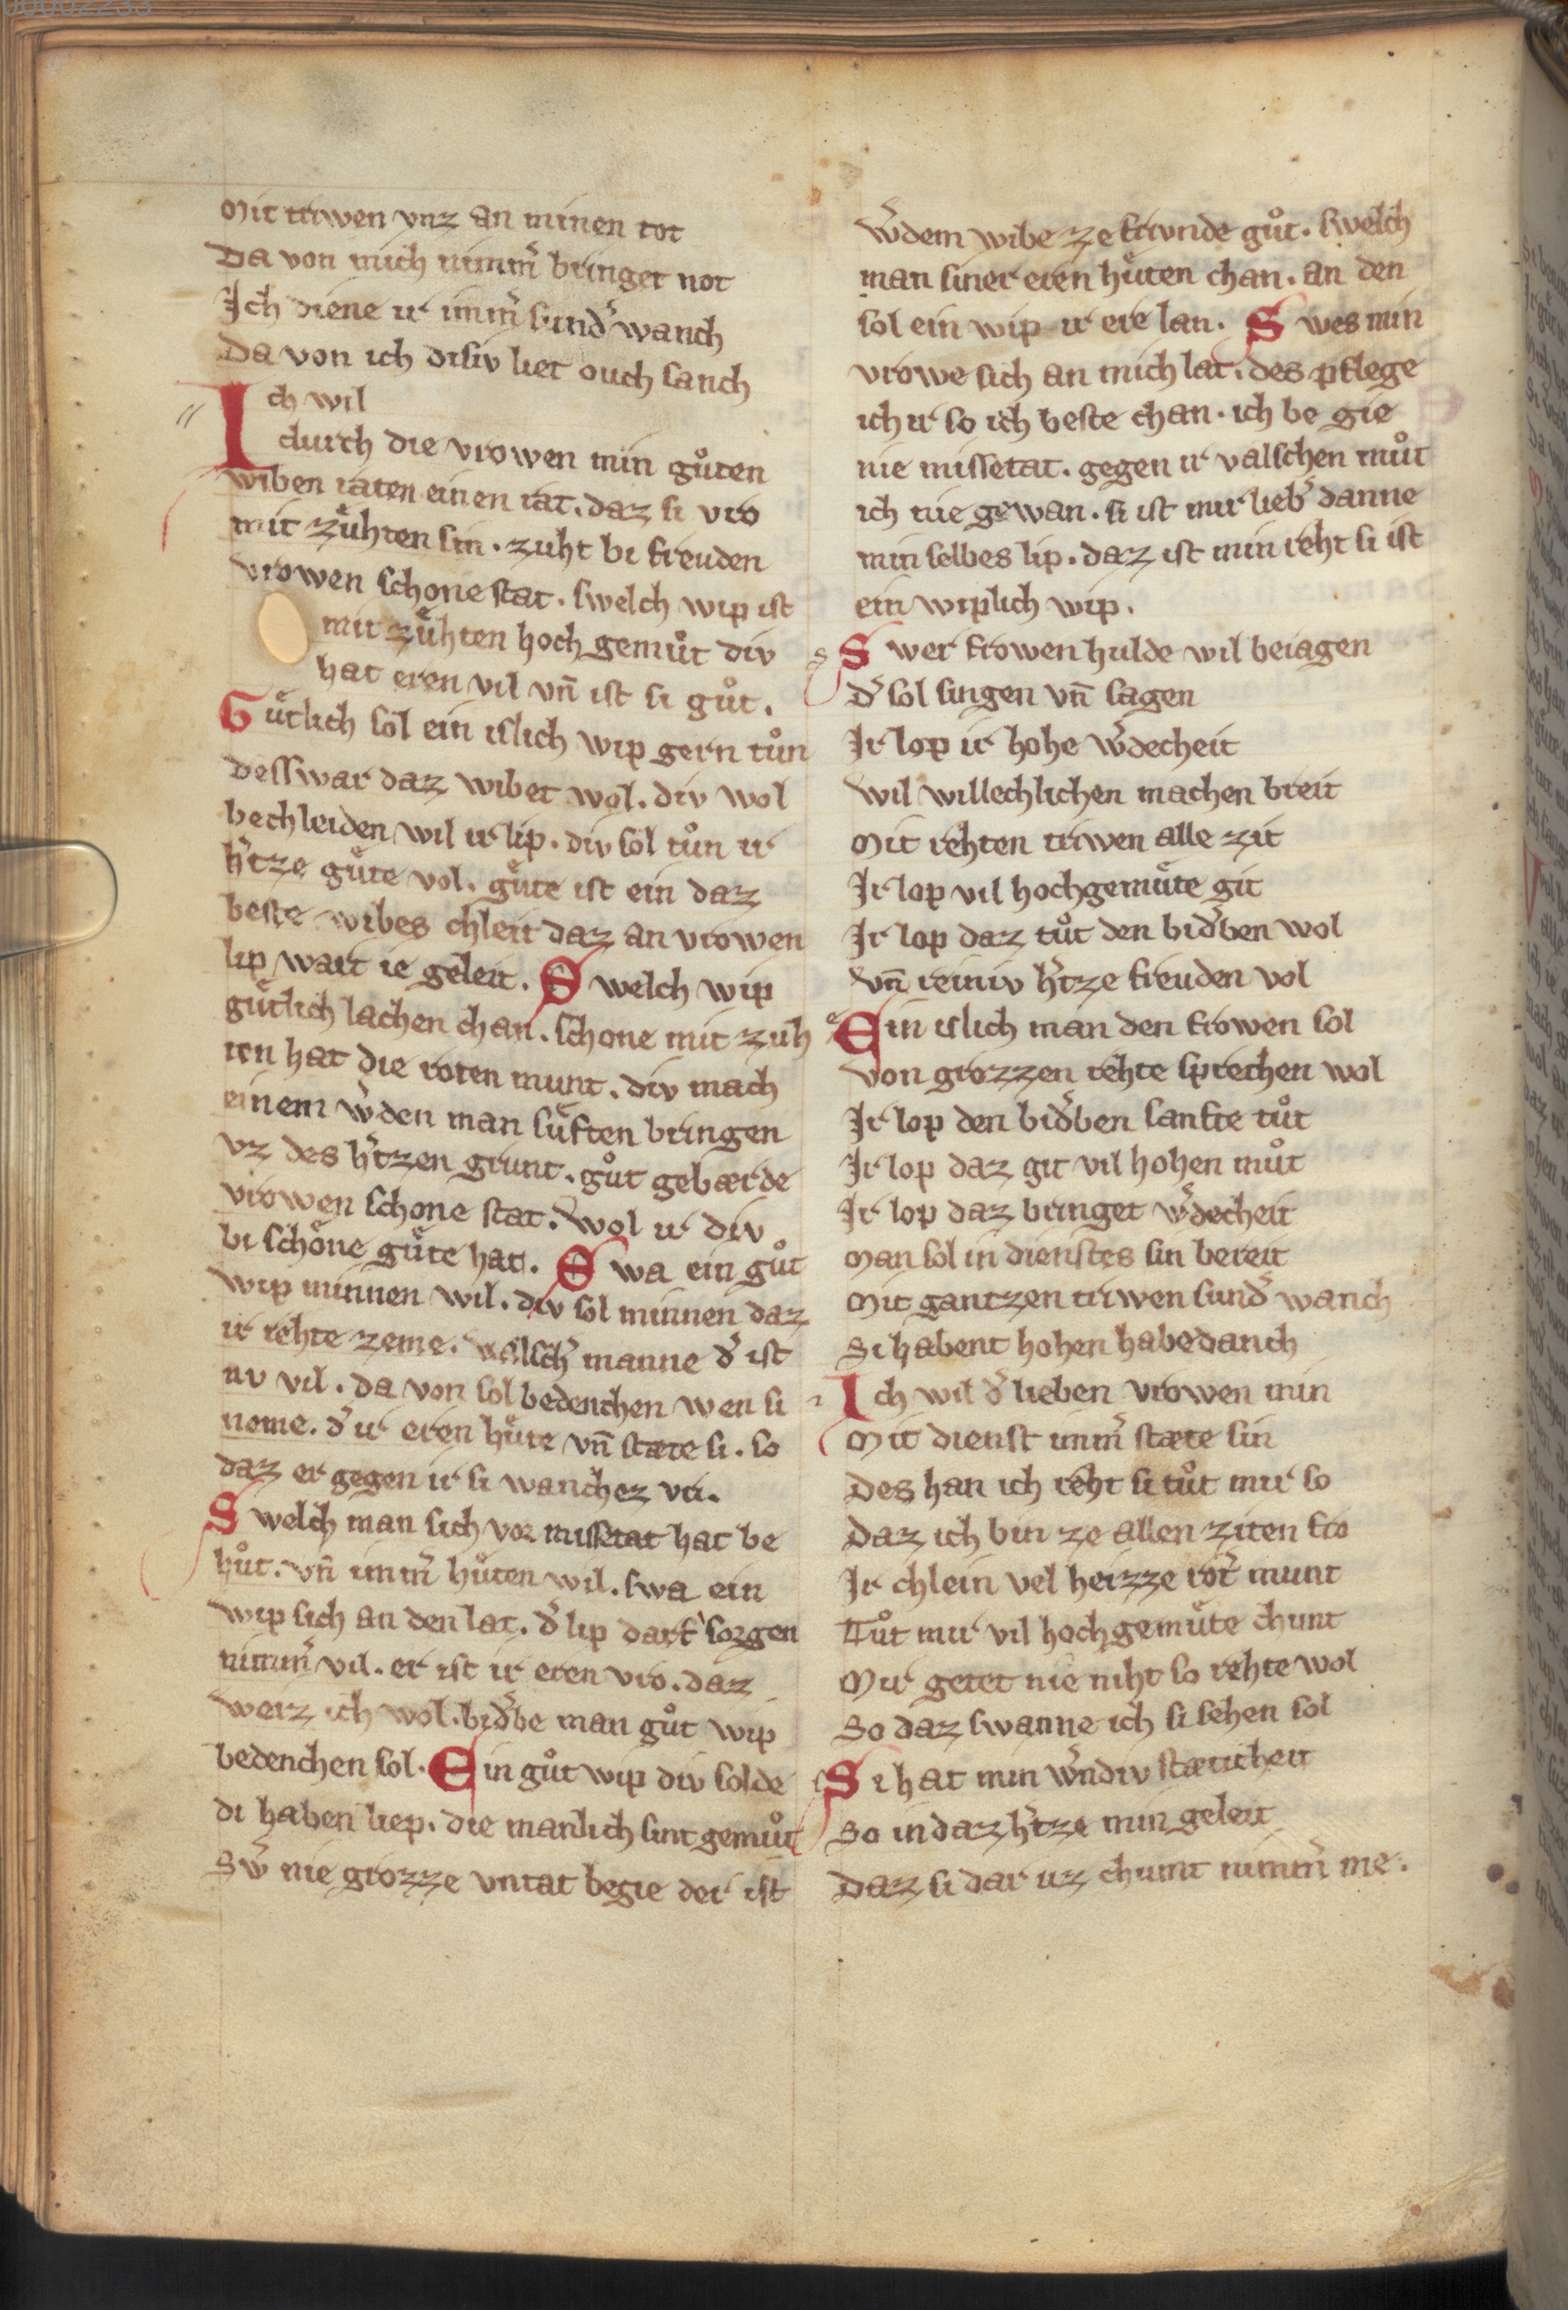 00002233
Mit triwen vnz an minen tot
Da von mich nimm̄ bringet not
Ich diene ir imm̄ sund̄ wanch
Da von ich disiv liet ouch sanch
Ich wil
durch die vrowen min gůten
wiben raten einen rat. daz si vro
mit zuͤhten sin. zuht bi freuden
vrowen schone stat. swelch wip ist
mit zuͤhten hoch gemůt div
hat eren vil vn̄ ist si gůt.
Guͤtlich sol ein islich wip gern tůn
desswar daz wibet wol. div wol
bechleiden wil ir lip. div sol tůn ir
h̄tze guͤte vol. guͤte ist ein daz
beste wibes chleit daz an vrowen
lip wart ie geleit. Swelch wip
guͤtlich lachen chan. schone mit zuh
ten hat die roten munt. div mach
einem w̄den man suͤften bringen
vz des h̄tzen grunt. gůt gebærde
vrowen schone stat. Wol ir div
bi schoͤne guͤte hat. Swa ein gůt
wip minnen wil. div sol minnen daz
ir rehte zeme. valsch̄ manne d̄ ist
nv vil. da von sol bedenchen wen si
neme. d̄ ir eren huͤte vn̄ stæte si. so
daz er gegen ir si wanchez vri.
Swelch man sich vor missetat hat be
hůt. vn̄ imm̄ huͤten wil. swa ein
wip sich an den lat. d̄ lip darf sorgen
nimm̄ vil. er ist ir eren vro. daz
weiz ich wol. bid̄be man gůt wip
bedenchen sol. Ein gůt wip div solde
di haben liep. die manlich sint gemůt
Sw̄ nie grozze vntat begie der ist
w̄dem wibe ze friunde gůt. swelch
man siner eren huͤten chan. an den
sol ein wip ir ere lan. Swes min
vrowe sich an mich lat. des pflege
ich ir so ich beste chan. ich be gie
nie missetat. gegen ir valschen můt
ich nie gewan. si ist mir lieb̄ danne
min selbes lip. daz ist min reht si ist
ein wiplich wip.
Swer frowen hulde wil beiagen
d̄ sol singen vn̄ sagen
Ir lop ir hohe w̄decheit
Wil willechlichen machen breit
Mit rehten triwen alle zit
Ir lop vil hochgemuͤte git
Ir lop daz tůt den bid̄ben wol
Vn̄ reiniv h̄tze freuden vol
Ein islich man den frowen sol
Von grozzen rehte sprechen wol
Ir lop den bid̄ben sanfte tůt
Ir lop daz git vil hohen můt
Ir lop daz bringet w̄decheit
Man sol in dienstes sin bereit
Mit gantzen triwen sund̄ wanch
Si habent hohen habedanch
Ich wil d̄ lieben vrowen min
Mit dienst imm̄ stæte sin
Des han ich reht si tůt mir so
Daz ich bin ze allen ziten fro
Ir chlein vel heizze rot̄ munt
Tůt mir vil hochgemuͤte chunt
Mir getet nie niht so rehte wol
So daz swanne ich si sehen sol
Si hat min w̄ndiv stæticheit
So in daz h̄tze min geleit
Daz si dar uz chumt nimm̄ me.